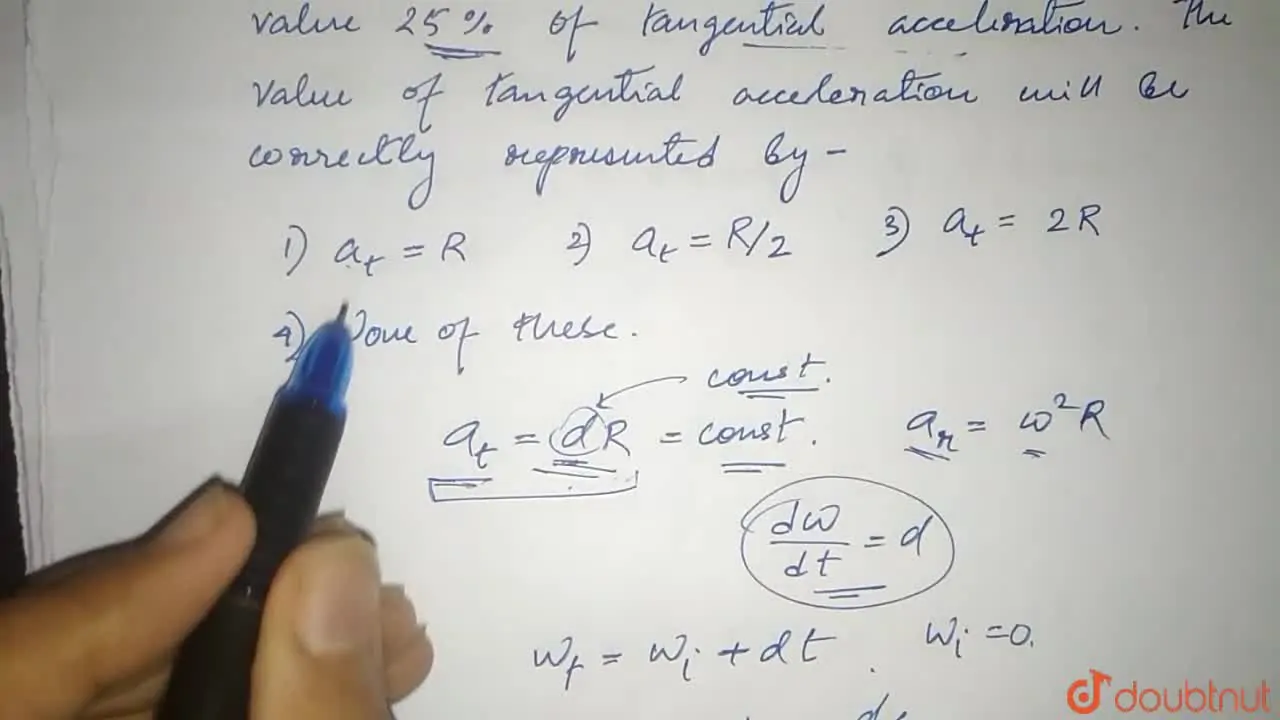 value 25% of tangential acceleration. The
value of tangential acceleration will be
correctly represented by -
1) aₜ = R 2) aₜ = R/2 3) aₜ = 2R
4) None of these.
const.
aₜ = αR = const. aᵣ = ω²R
dω/dt = α
ω_f = ω_i + αt. ω_i = 0.
doubtnut